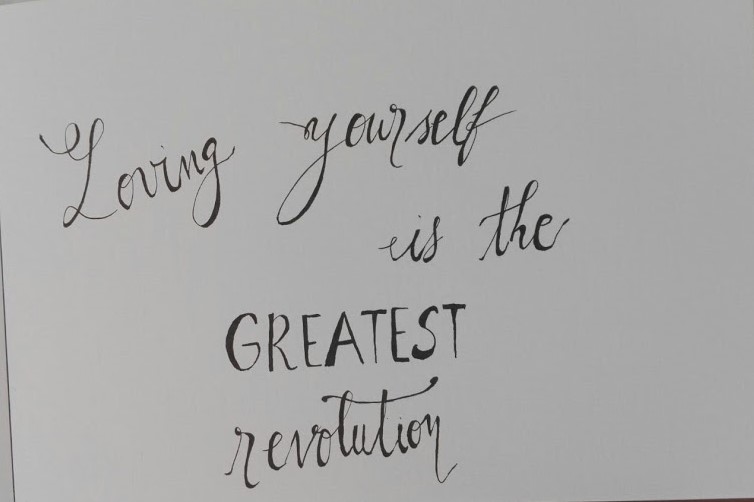 Loving yourself
is the
GREATEST
revolution